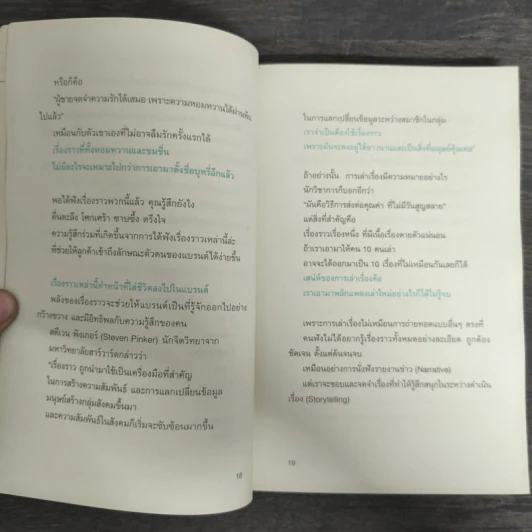 หรือก็คือ
"ผู้ชายจดจำความรักได้เสมอ เพราะความหอมหวานได้ผ่านพ้น
ไปแล้ว"
เหมือนกับตัวเขาเองที่ไม่อาจลืมรักครั้งแรกได้
เรื่องราวที่ทั้งหอมหวานและขมขื่น
ไม่มีอะไรจะเหมาะไปกว่าการเอามาตั้งชื่อบุหรี่อีกแล้ว
พอได้ฟังเรื่องราวพวกนี้แล้ว คุณรู้สึกยังไง
ตื่นตะลึง โศกเศร้า ซาบซึ้ง ตรึงใจ
ความรู้สึกร่วมที่เกิดขึ้นจากการได้ฟังเรื่องราวเหล่านี้ล่ะ
ที่ช่วยให้ลูกค้าเข้าถึงลักษณะตัวตนของแบรนด์ได้ง่ายขึ้น
เรื่องราวเหล่านี้ทำหน้าที่ใส่ชีวิตลงไปในแบรนด์
พลังของเรื่องราวจะช่วยให้แบรนด์เป็นที่รู้จักออกไปอย่าง
กว้างขวาง และมีอิทธิพลกับความรู้สึกของคน
สตีเวน พิงเกอร์ (Steven Pinker) นักจิตวิทยาจาก
มหาวิทยาลัยฮาร์วาร์ดกล่าวว่า
"เรื่องราว ถูกนำมาใช้เป็นเครื่องมือที่สำคัญ
ในการสร้างความสัมพันธ์ และการแลกเปลี่ยนข้อมูล
มนุษย์สร้างกลุ่มสังคมขึ้นมา
และความสัมพันธ์ในสังคมก็เริ่มจะซับซ้อนมากขึ้น
18
ในการแลกเปลี่ยนข้อมูลระหว่างสมาชิกในกลุ่ม
เราจำเป็นต้องใช้เรื่องราว
เพราะมันจะคงอยู่ได้ยาวนานและเป็นสิ่งที่มนุษย์คุ้นเคย"
ถ้าอย่างนั้น การเล่าเรื่องมีความหมายอย่างไร
นักวิชาการก็บอกอีกว่า
"มันคือวิธีการส่งต่อคุณค่า ที่ไม่มีวันสูญสลาย"
แต่สิ่งที่สำคัญคือ
เรื่องราวเรื่องหนึ่ง ที่มีเนื้อเรื่องตายตัวแน่นอน
ถ้าเราเอามาให้คน 10 คนเล่า
อาจจะได้ออกมาเป็น 10 เรื่องที่ไม่เหมือนกันเลยก็ได้
เสน่ห์ของการเล่าเรื่องคือ
เราเอามาพลิกแพลงเล่าใหม่อย่างไรก็ได้ไม่รู้จบ
เพราะการเล่าเรื่องไม่เหมือนการถ่ายทอดแบบอื่นๆ ตรงที่
คนฟังไม่ได้อยากรู้เรื่องราวทั้งหมดอย่างละเอียด ถูกต้อง
ชัดเจน ตั้งแต่ต้นจนจบ
เหมือนอย่างการนั่งฟังรายงานข่าว (Narrative)
แต่เราจะชอบและจดจำเรื่องที่ทำให้รู้สึกสนุกในระหว่างดำเนิน
เรื่อง (Storytelling)
19